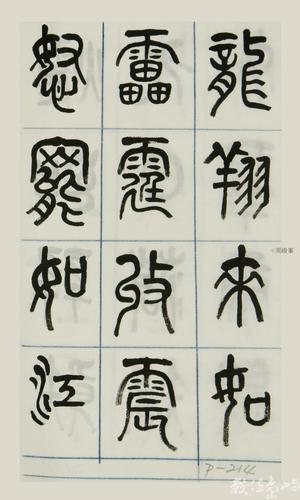 龍翔來如
雷霆收震
怒罷如江
P-214